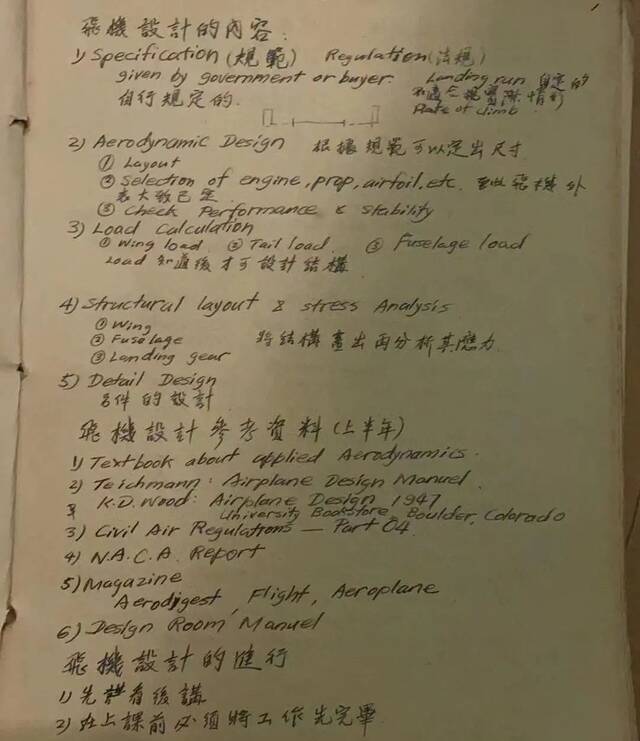 飛機設計的內容.
1) Specification (規範) Regulation (法規)
given by government or buyer. Landing run 自定的
自行規定的.
Rate of climb
2) Aerodynamic Design 根據規範可以定出尺寸
① Layout
② Selection of engine, prop, airfoil, etc. 飛機外
表大致已定
③ Check Performance & stability
3) Load Calculation
① Wing load ② Tail load ③ Fuselage load
Load 知道後才可設計結構
4) Structural layout & stress Analysis
① Wing
② Fuselage 將結構畫出再分析其應力
③ Landing gear
5) Detail Design
各件的設計
飛機設計參考資料 (上半年)
1) Textbook about applied Aerodynamics.
2) Teichmann: Airplane Design Manuel.
K.D. Wood: Airplane Design 1947
University Bookstore, Boulder, Colorado
3) Civil Air Regulations — Part 04.
4) N.A.C.A. Report
5) Magazine
Aerodigest, Flight, Aeroplane
6) Design Room Manuel
飛機設計的進行
1) 先看後講
2) 在上課前必須將工作先完畢